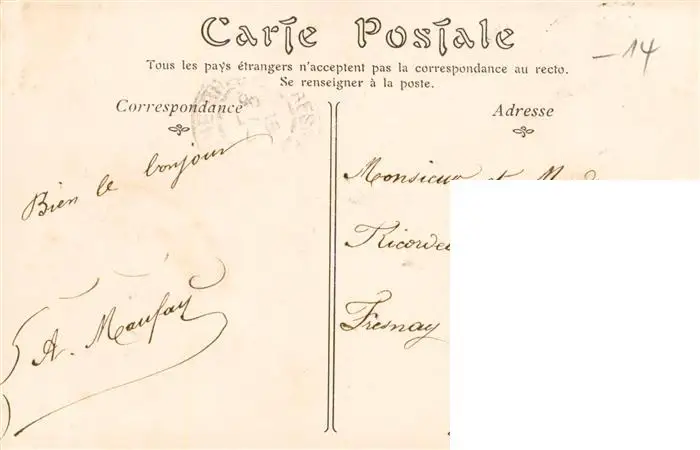 Carte Postale
Tous les pays étrangers n'acceptent pas la correspondance au recto.
Se renseigner à la poste.
-14
Correspondance
Adresse
Bien le bonjour
A. Maufay
Monsieur et
Fresnay